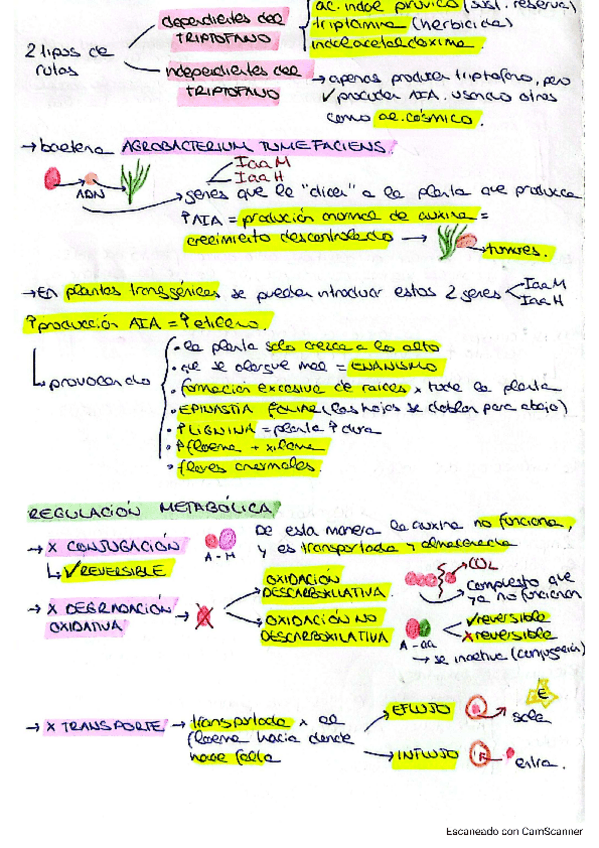 ac. indol pirúvico (sust. reserva)
dependientes del TRIPTÓFANO
triptamina (herbicida)
indolacetaldoxima.
2 tipos de rutas
independientes del TRIPTÓFANO
→ apenas producen triptófano, pero
✓ producen AIA. usando otros
como ac. cósmico.
→ bacteria AGROBACTERIUM TUMEFACIENS.
IaaM
IaaH
ADN
→ genes que le "dicen" a la planta que produzca
↑AIA = producción anormal de auxina =
crecimiento descontrolado →
→ tumores.
→ En plantas transgénicas se pueden introducir estos 2 genes
IaaM
IaaH
↑producción AIA = ↑etileno.
provocando
• la planta solo crezca a lo alto
• que se alargue mal = ENANISMO
• formación excesiva de raíces x toda la planta
• EPINASTIA FOLIAR (las hojas se doblan para abajo)
• ↑LIGNINA = planta ↑ dura
• ↑floema + xilema
• flores anormales.
REGULACIÓN METABÓLICA
→ X CONJUGACIÓN
A - M
De esta manera la auxina no funciona,
y es transportada y almacenada
↳ ✓REVERSIBLE
→ X DEGRADACIÓN OXIDATIVA →
OXIDACIÓN DESCARBOXILATIVA.
→ CO₂
→ compuesto que
ya no funciona
OXIDACIÓN NO DESCARBOXILATIVA
A - aa
✓reversible
✗reversible
→ se inactiva (conjugación)
→ X TRANSPORTE → transportada x el
floema hacia donde
hace falta
→ EFLUJO
E
sale
→ INFLUJO
entra.
Escaneado con CamScanner